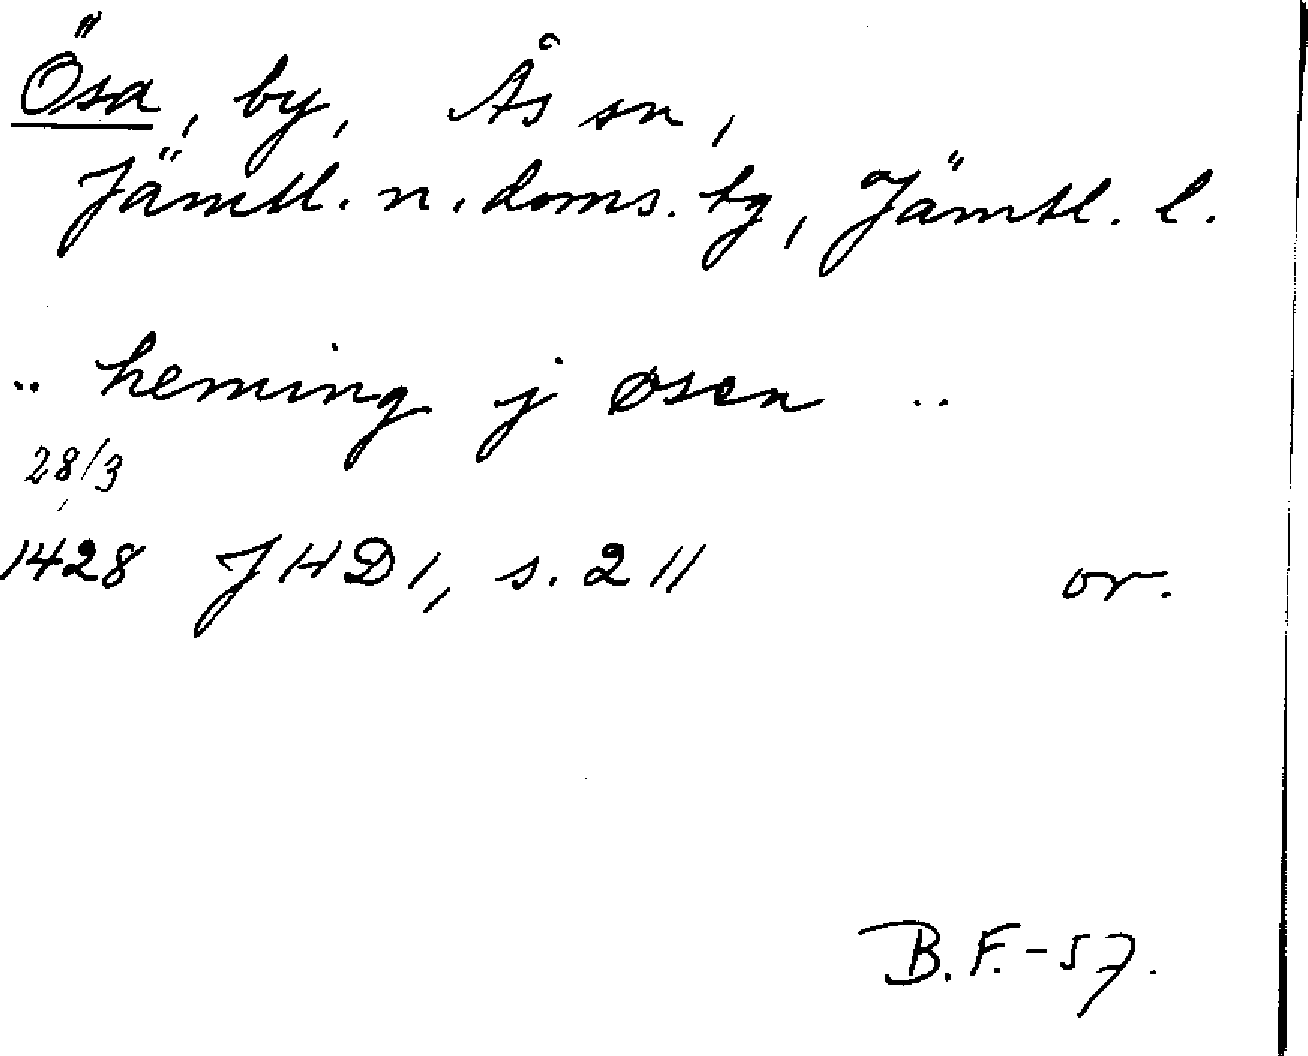 Ösa, by, Ås sn,
Jämtl. n. doms. tg, Jämtl. l.
.. heming j øsen ..
28/3
1428 JHD 1, s. 211 or.
B.F.-57.